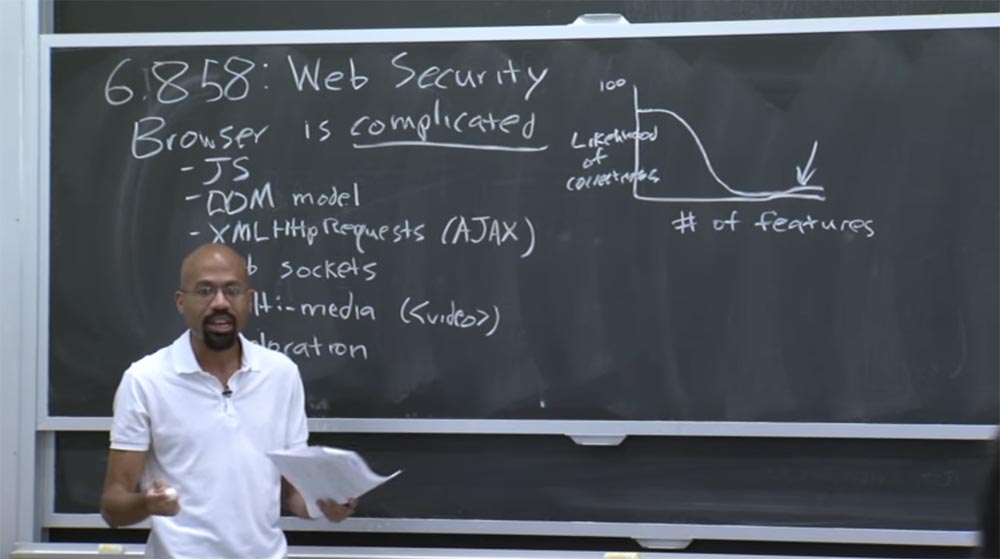 6.858: Web Security
Browser is complicated
- JS
- DOM model
- XMLHttpRequests (AJAX)
sockets
lti-media (<video>)
olocation
100
Likelihood
of
correctness
# of features